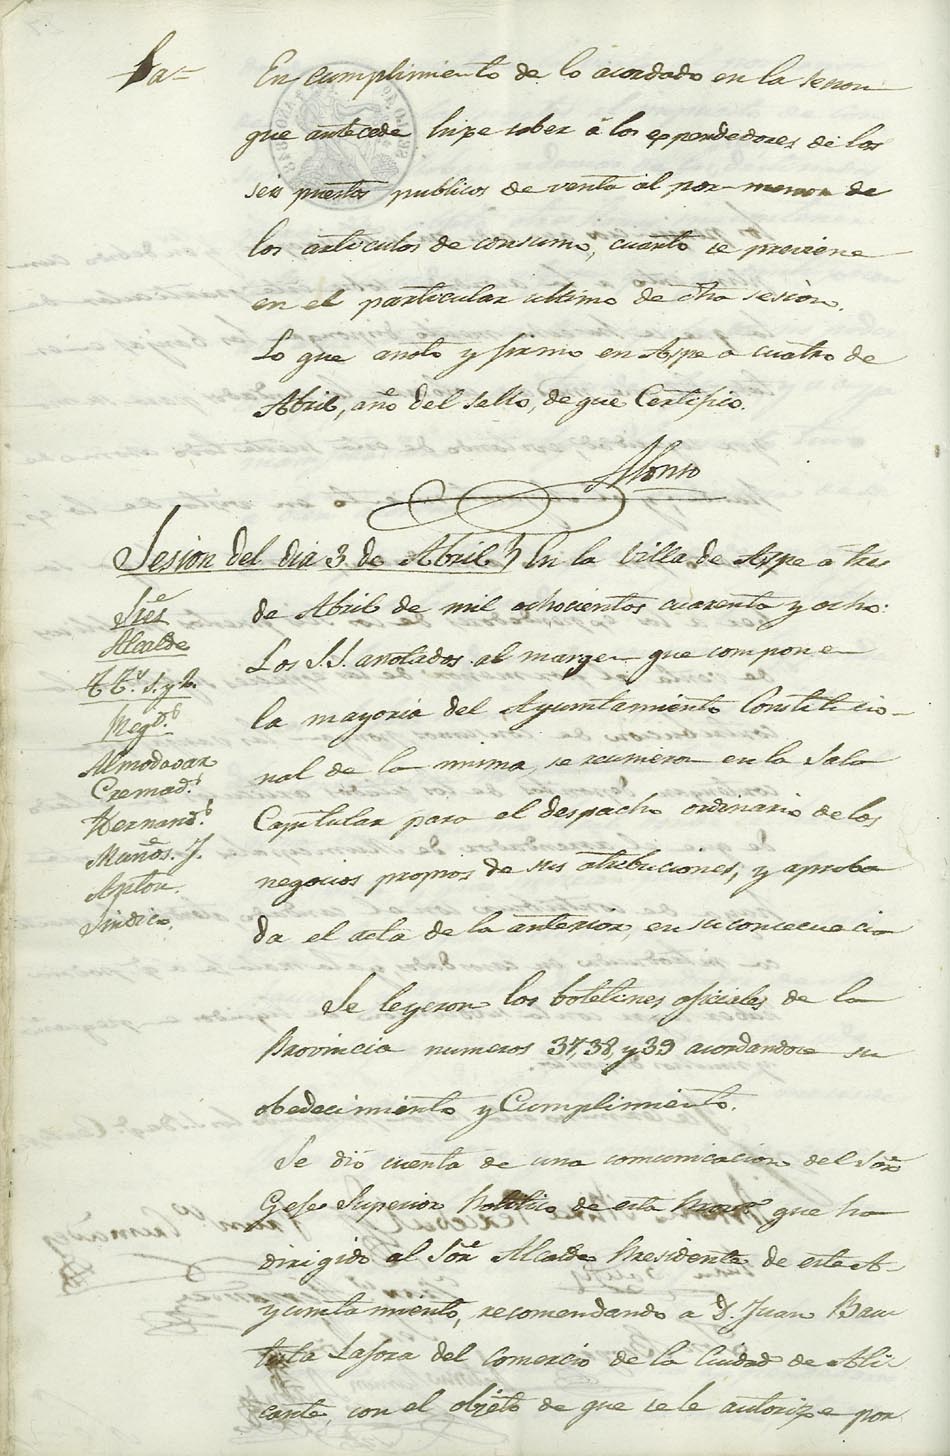 En cumplimiento de lo acordado en la sesion
que antecede hize saber á los expendedores de los
seis puestos publicos de venta al por menor de
los articulos de consumo, cuanto se previene
en el particular ultimo de dha sesion.
Lo que anoto y firmo en Aspe a cuatro de
Abril, año del sello, de que Certifico.
Alonso
Sesion del dia 3 de Abril
En la Villa de Aspe a tres
de Abril de mil ochocientos cuarenta y ocho:
Los S.S. anotados al margen que componen
la mayoria del Ayuntamiento Constitucio-
nal de la misma, se reunieron en la Sala
Capitular para el despacho ordinario de los
negocios propios de sus atribuciones, y aproba
da el acta de la anterior, en su concecuencia
Sres
Alcalde
TT.s 1. y 2.
Regid.s
Almodovar
Cremad.s
Hernand.s
Mañòs. J.
Sindico.
Se leyeron los boletines oficiales de la
Provincia numeros 37, 38, y 39 acordandose su
obedecimiento y Cumplimiento.
Se dió cuenta de una comunicacion del Sõr
Gefe Superior Politico de esta Prov.a que ha
dirigido al Sõr Alcalde Presidente de este A-
yuntamiento, recomendando a D. Juan Bau
tista Lafora del Comercio de la Ciudad de Ali-
cante, con el objeto de que se le autorize por